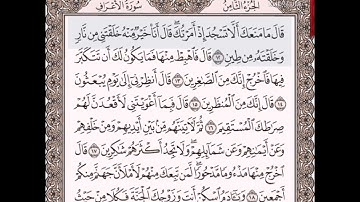 الجزء الثامن سورة الأعراف
قَالَ مَا مَنَعَكَ أَلَّا تَسْجُدَ إِذْ أَمَرْتُكَ ۖ قَالَ أَنَا۠ خَيْرٌ مِّنْهُ خَلَقْتَنِى مِن نَّارٍ
وَخَلَقْتَهُۥ مِن طِينٍ ١٢ قَالَ فَٱهْبِطْ مِنْهَا فَمَا يَكُونُ لَكَ أَن تَتَكَبَّرَ
فِيهَا فَٱخْرُجْ إِنَّكَ مِنَ ٱلصَّٰغِرِينَ ١٣ قَالَ أَنظِرْنِىٓ إِلَىٰ يَوْمِ يُبْعَثُونَ
١٤ قَالَ إِنَّكَ مِنَ ٱلْمُنظَرِينَ ١٥ قَالَ فَبِمَآ أَغْوَيْتَنِى لَأَقْعُدَنَّ لَهُمْ
صِرَٰطَكَ ٱلْمُسْتَقِيمَ ١٦ ثُمَّ لَءَاتِيَنَّهُم مِّنۢ بَيْنِ أَيْدِيهِمْ وَمِنْ خَلْفِهِمْ
وَعَنْ أَيْمَٰنِهِمْ وَعَن شَمَآئِلِهِمْ ۖ وَلَا تَجِدُ أَكْثَرَهُمْ شَٰكِرِينَ ١٧ قَالَ
ٱخْرُجْ مِنْهَا مَذْءُومًا مَّدْحُورًا ۖ لَّمَن تَبِعَكَ مِنْهُمْ لَأَمْلَأَنَّ جَهَنَّمَ مِنكُمْ
أَجْمَعِينَ ١٨ وَيَٰٓـَٔادَمُ ٱسْكُنْ أَنتَ وَزَوْجُكَ ٱلْجَنَّةَ فَكُلَا مِنْ حَيْثُ